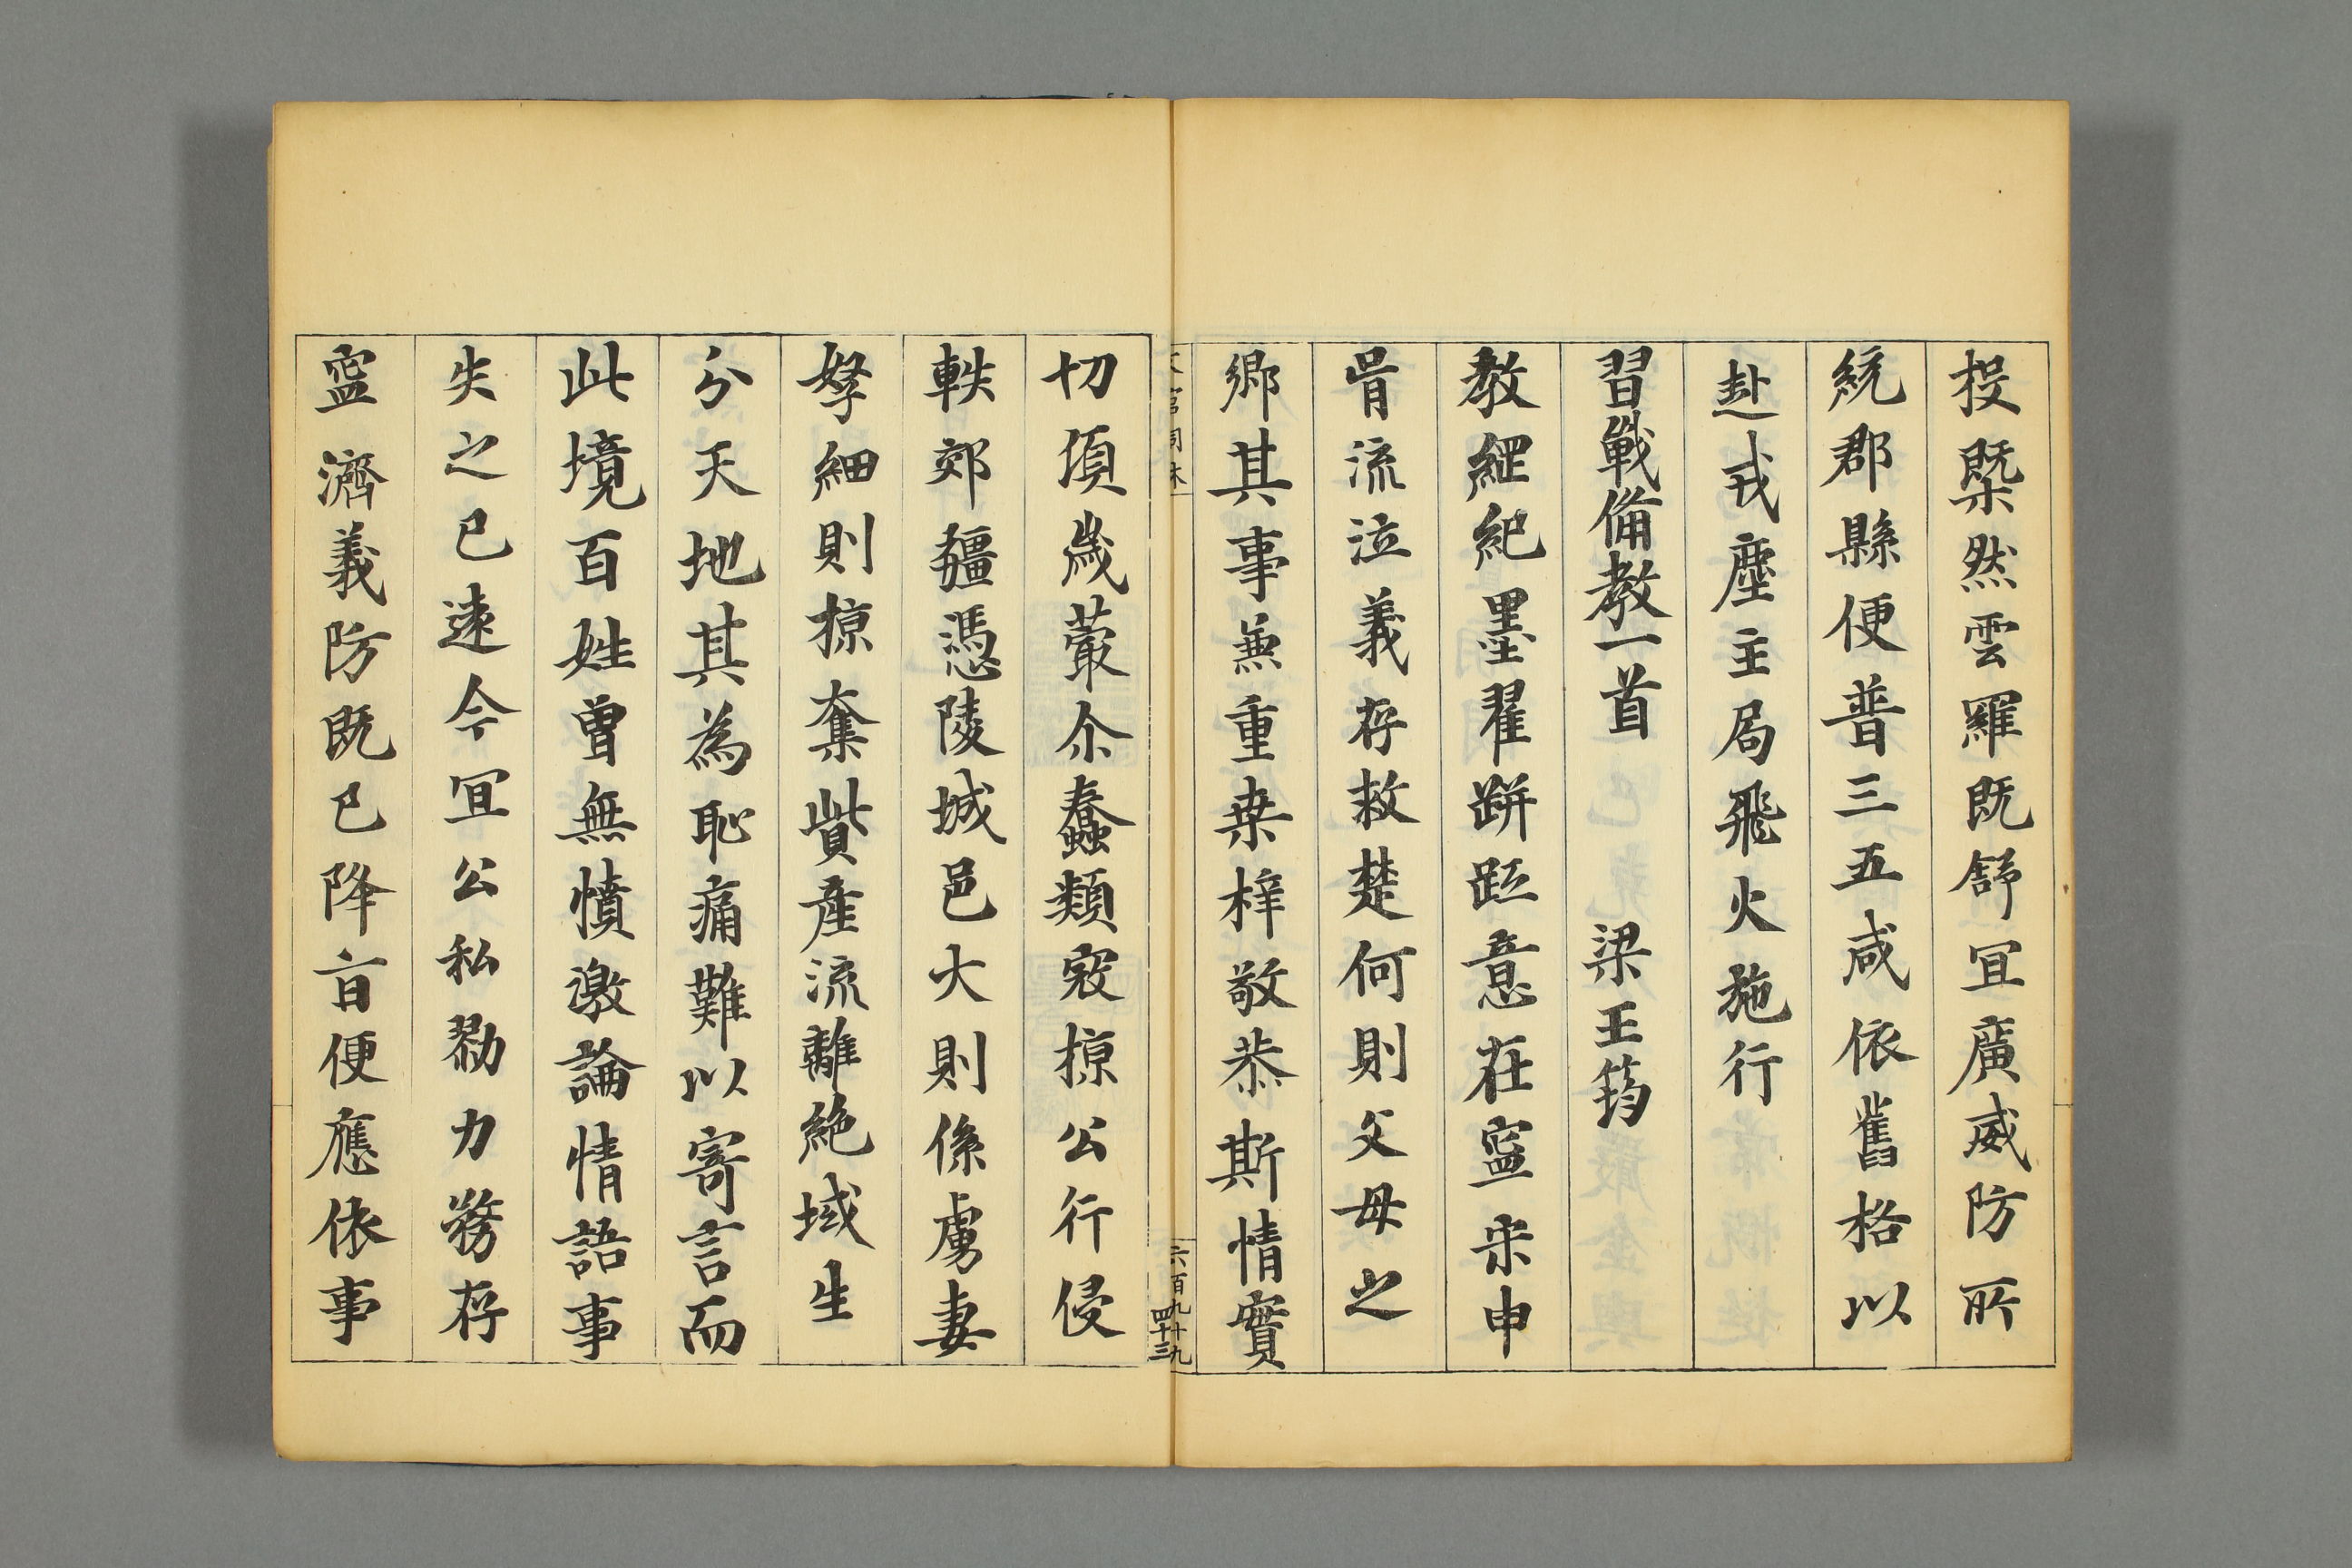 投槩然雲羅既舒宜廣威防所
統郡縣便普三五咸依舊格以
赴戎塵主局飛火施行
習戰備教一首 梁王筠
教纙紀墨翟跰跖意在寍宋申
胥流泣義存救楚何則父母之
鄉其事兼重桒梓敬恭斯情實
六百九十九
四十三
切頃歲蕞尒蠢類寇掠公行侵
軼郊疆憑陵城邑大則係虜妻
孥細則掠奪貲產流離絶域生
分天地其為恥痛難以寄言而
此境百姓曾無憤激論情語事
失之已遠今宜公私勠力務存
寍濟義防既已降旨便應依事